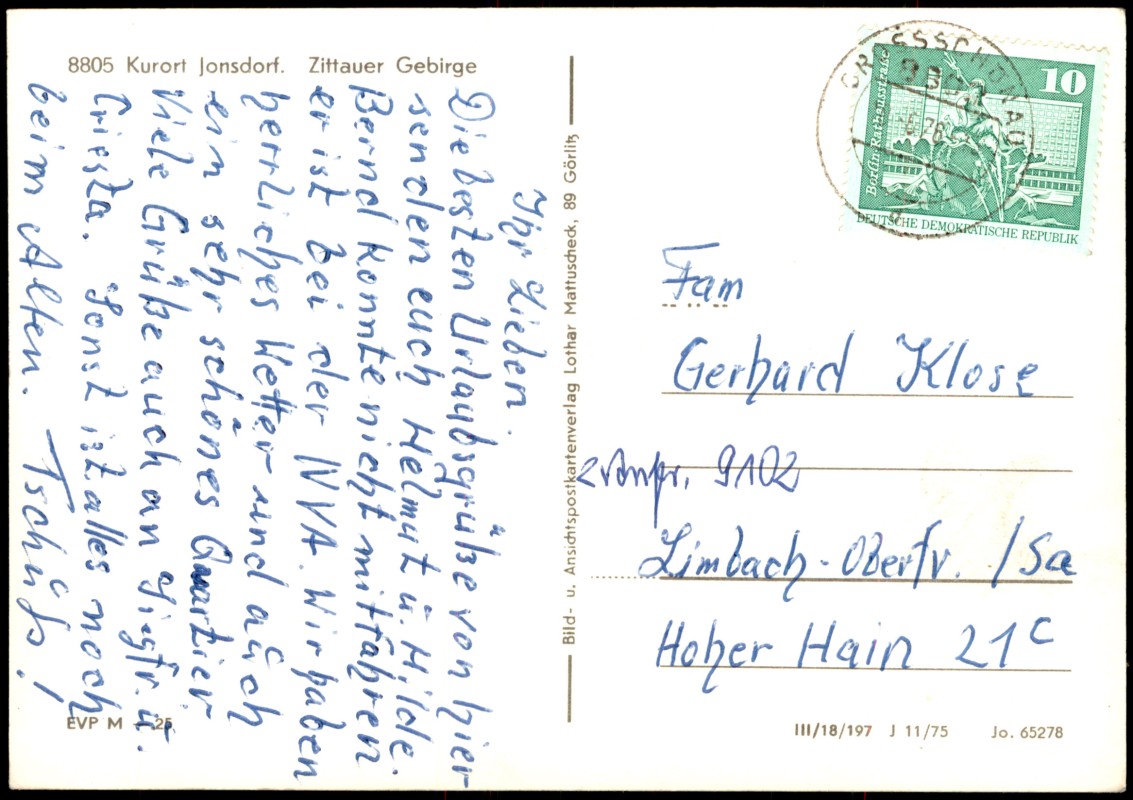 8805 Kurort Jonsdorf. Zittauer Gebirge
Ihr Lieben.
Die besten Urlaubsgrüße von hier
senden euch Helmut u. Hilde.
Bernd konnte nicht mitfahren
er ist bei der NVA. Wir haben
herrliches Wetter und auch
ein sehr schönes Quartier
Viele Grüße auch an Siegfr. u.
Crista. Sonst ist alles noch
beim Alten. Tschüß!
EVP M 25
Bild- u. Ansichtspostkartenverlag Lothar Mattuscheck, 89 Görlitz
GROSSSCHÖNAU
10
Berlin, Rathausstraße
DEUTSCHE DEMOKRATISCHE REPUBLIK
Fam
Gerhard Klose
9102
Limbach-Oberfr. /Sa
Hoher Hain 21c
III/18/197 J 11/75 Jo. 65278